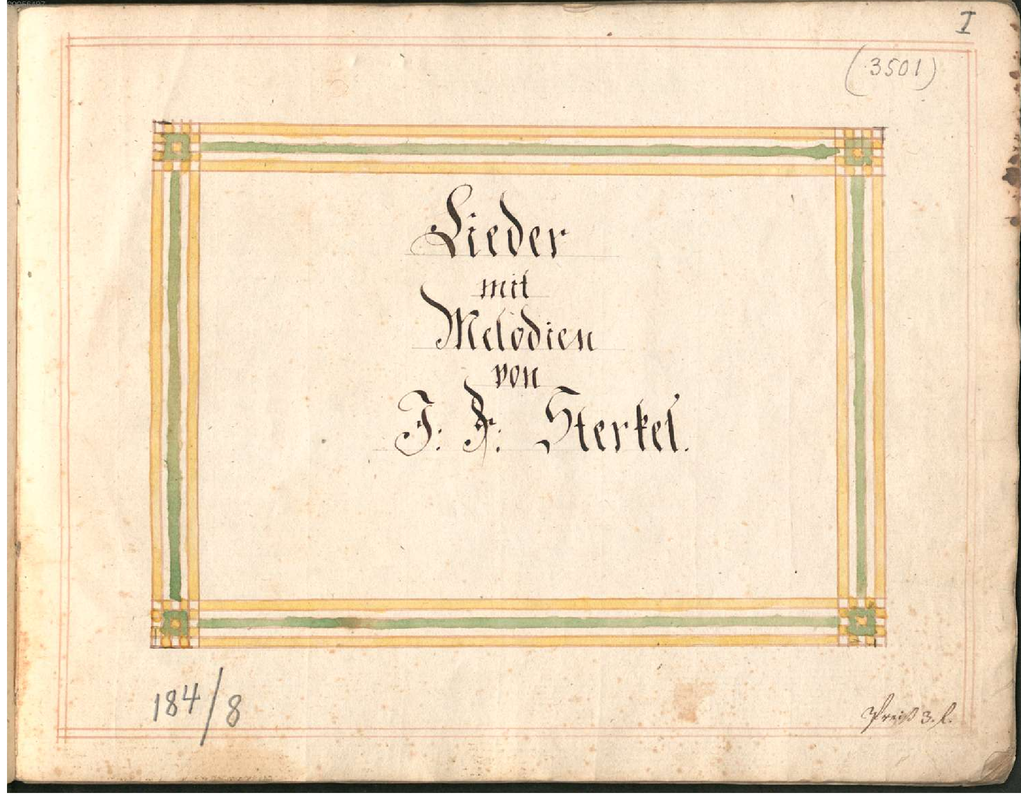 I
(3501)
Lieder
mit
Melodien
von
J. F. Sterkel.
184/8
Preiß 3. f.